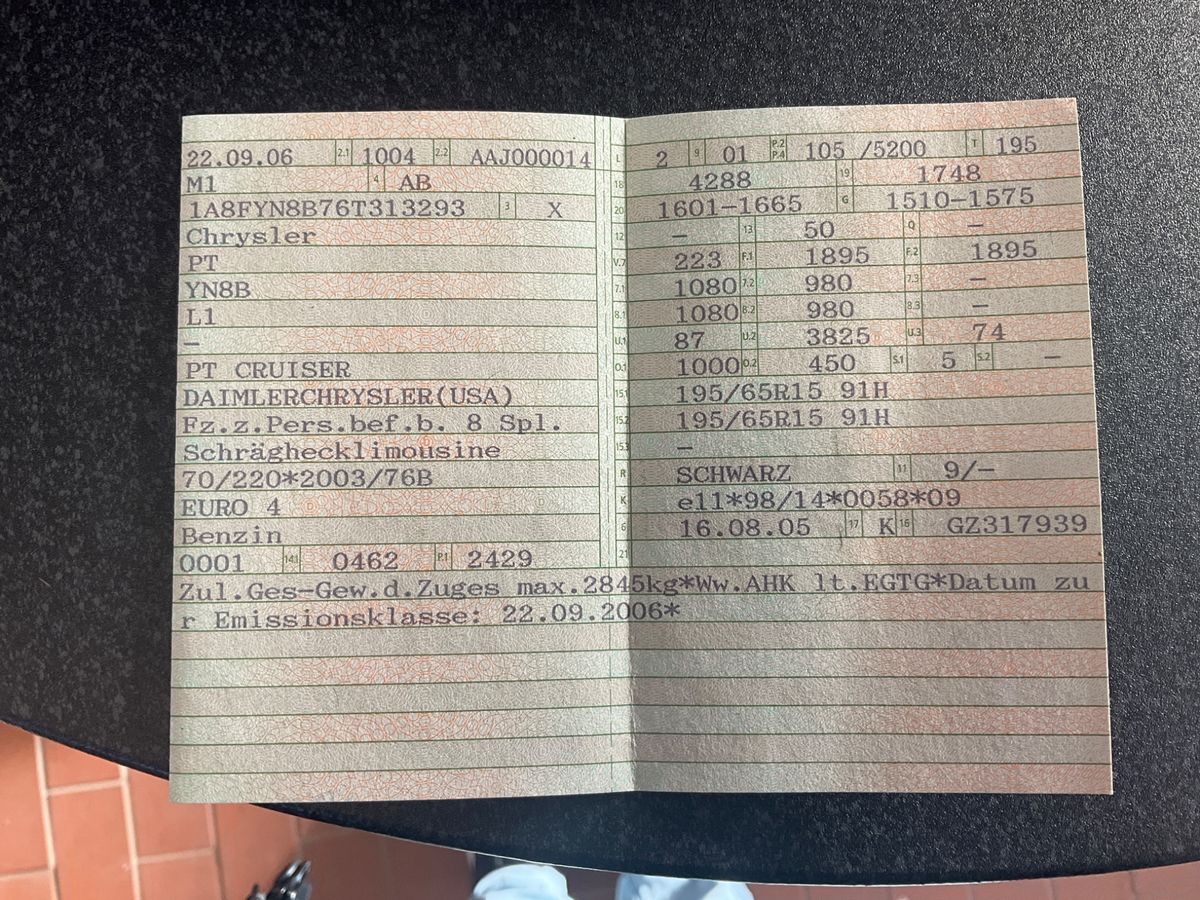 22.09.06 2.1 1004 2.2 AAJ000014 L 2 9 01 P.2 P.4 105 /5200 T 195
M1 4 AB 18 4288 19 1748
1A8FYN8B76T313293 3 X 20 1601-1665 G 1510-1575
Chrysler 12 - 13 50 Q -
PT V.7 223 F.1 1895 F.2 1895
YN8B 7.1 1080 7.2 980 7.3 -
L1 8.1 1080 8.2 980 8.3 -
- U.1 87 U.2 3825 U.3 74
PT CRUISER O.1 1000 O.2 450 S.1 5 S.2 -
DAIMLERCHRYSLER(USA) 15.1 195/65R15 91H
Fz.z.Pers.bef.b. 8 Spl. 15.2 195/65R15 91H
Schräghecklimousine 15.3 -
70/220*2003/76B R SCHWARZ 11 9/-
EURO 4 K e11*98/14*0058*09
Benzin 6 16.08.05 17 K 16 GZ317939
0001 14.1 0462 P.1 2429 21
Zul.Ges-Gew.d.Zuges max.2845kg*Ww.AHK lt.EGTG*Datum zu
r Emissionsklasse: 22.09.2006*